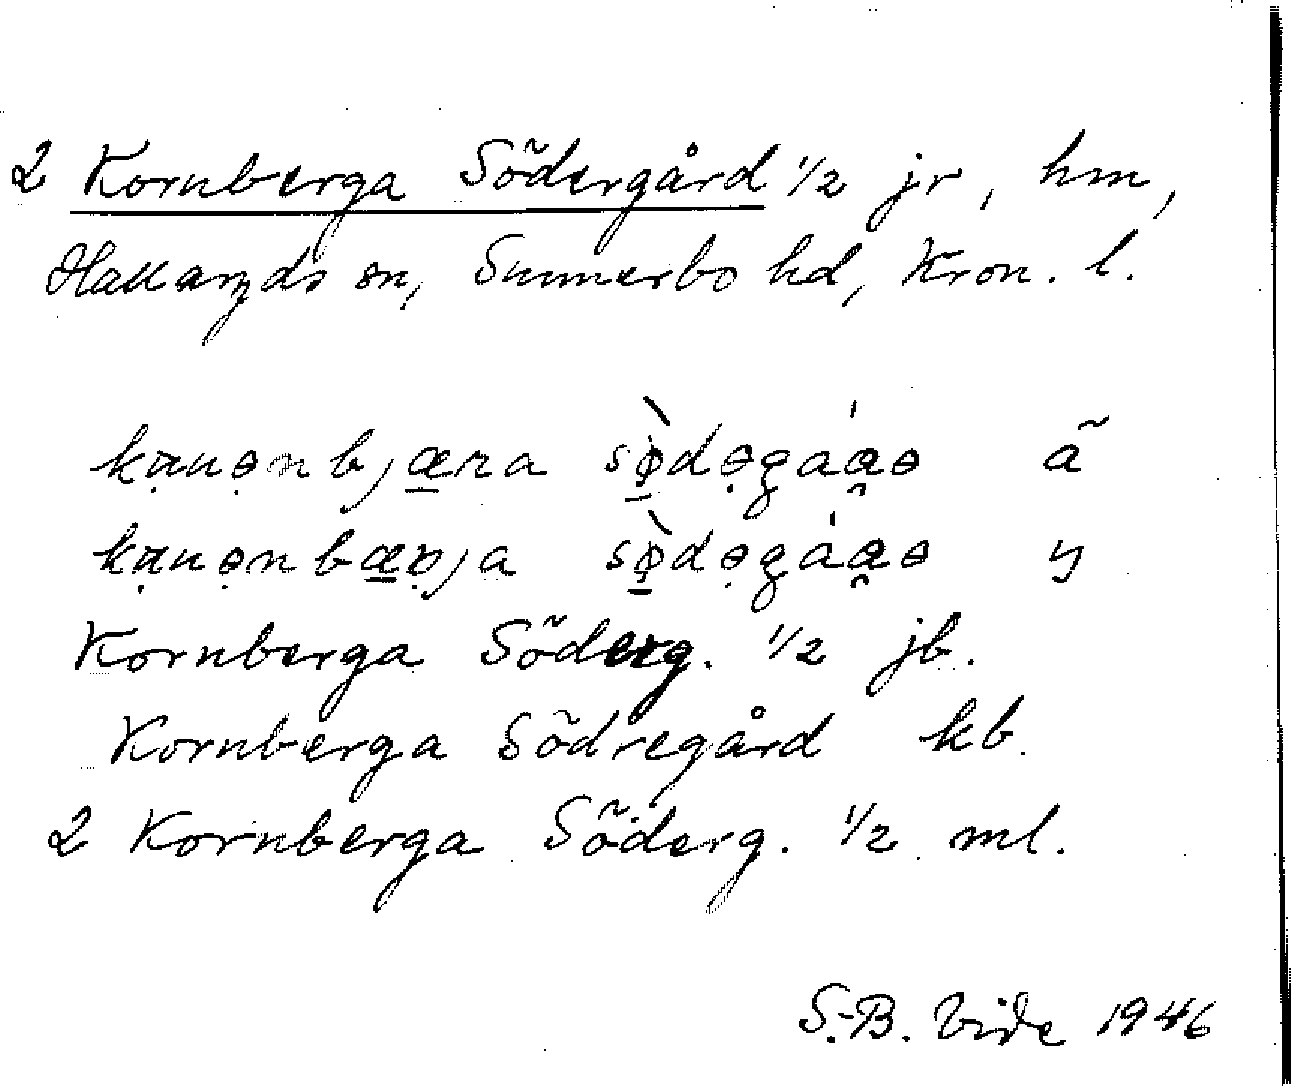 2 Kornberga Södergård 1/2 jr, hm,
Hallaryds sn, Sunnerbo hd, Kron. l.
ã
y
Kornberga Söderg. 1/2 jb.
Kornberga Södregård kb.
2 Kornberga Söderg. 1/2 ml.
S.-B. Vide 1946